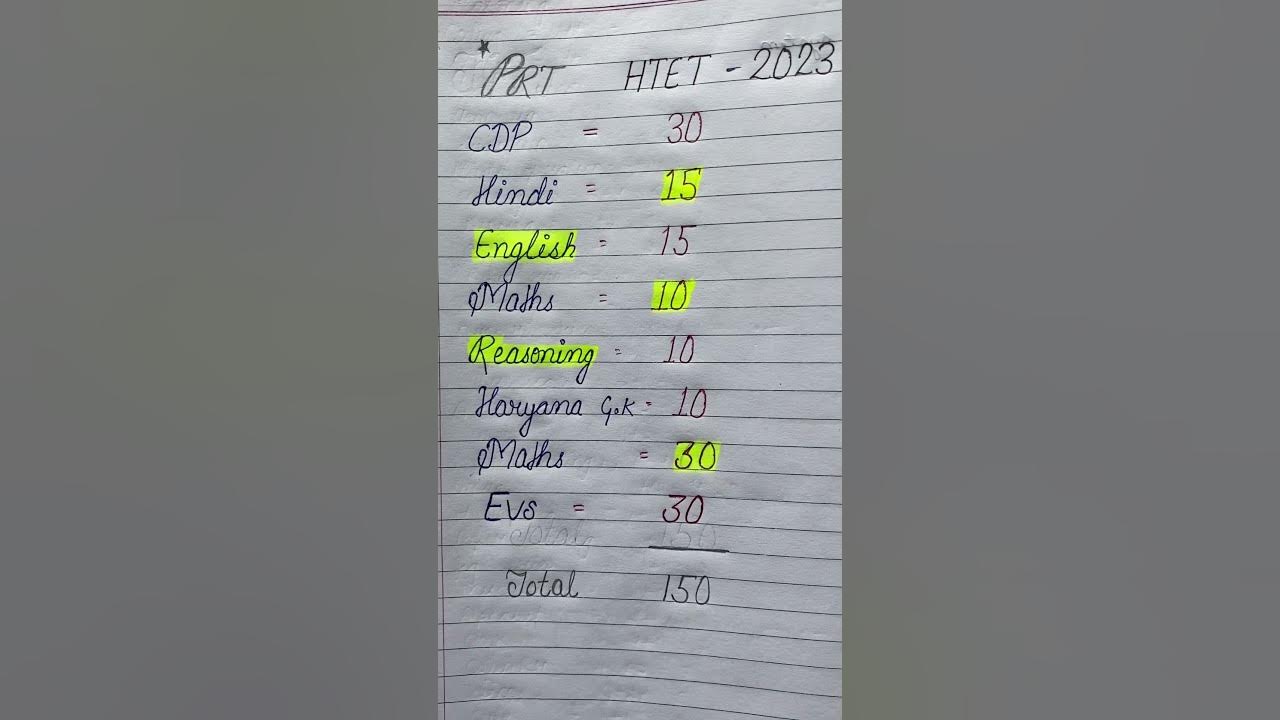 PRT HTET - 2023
CDP = 30
Hindi = 15
English = 15
Maths = 10
Reasoning = 10
Haryana G.K = 10
Maths = 30
EVS = 30
Total 150
Total 150